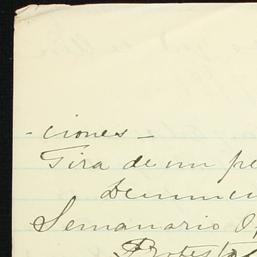 -ciones-
Tira de un pe
Denunci
Semanario O
Protesta